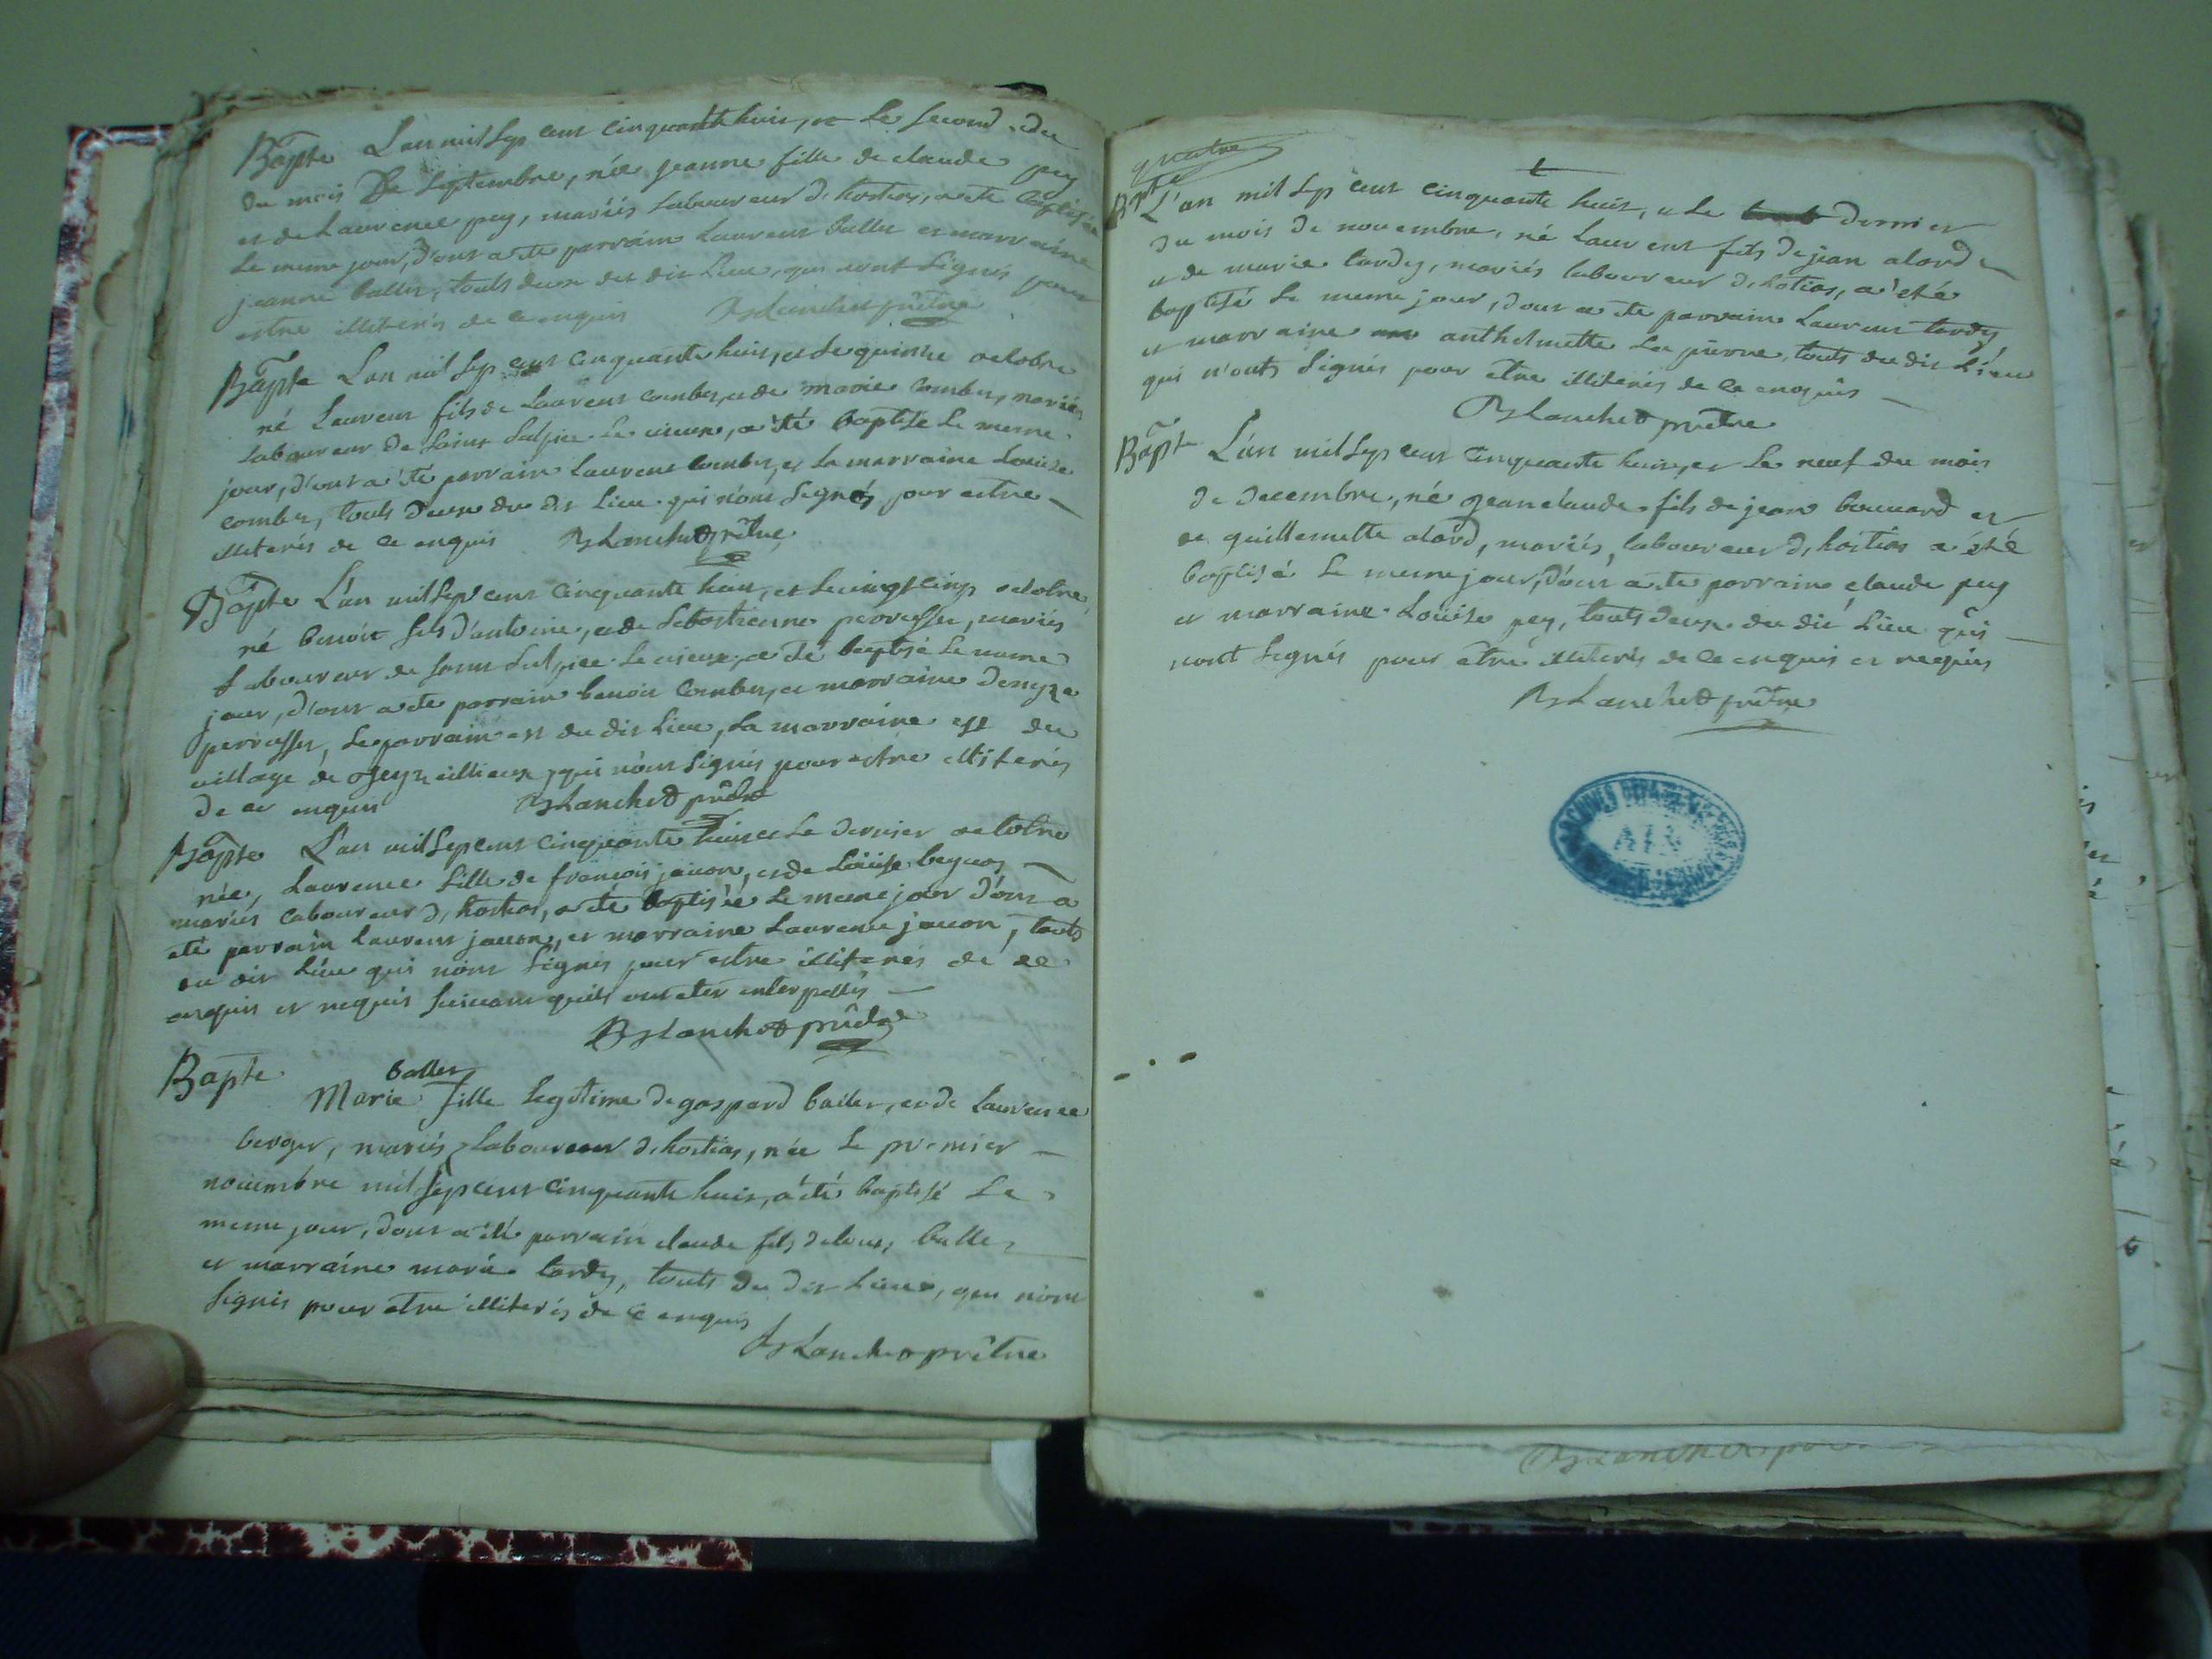 Bapte L'an mil sep cent cinquante huit, et le second du
du mois De septembre, née jeanne fille de claude pey
et de Laurence pey, mariés laboureur d. hostias, a ete baptisée
le meme jour, d'ont a ete parrain Laurent baller et marraine
jeanne baller, touts deux du dit Lieu, qui n'ont signés pour
estre illiterés de ce enquis Blanchet prêtre
Bapte L'an mil sep cent cinquante huit, et le quinze octobre
né Laurent fils de Laurent combes, et de marie combes, mariés
laboureur de saint sulpice le vieux, a été baptisé le meme
jour, d'ont a été parrain laurent combes, et la marraine Louise
combes, touts deux du dit Lieu qui n'ont signés pour estre
illiterés de ce enquis Blanchet prêtre
Bapte L'an mil sep cent cinquante huit, et le vingt cinq octobre
né benoit fils d'antoine, et de sebastienne perrasser, mariés
laboureur de saint sulpice le vieux, a été baptisé le meme
jour, d'ont a ete parrain benoit combes, et marraine denyze
perrasser, le parrain est du dit Lieu, la marraine est du
village de qui n'ont signés pour estre illiterés
de ce enquis Blanchet prêtre
Bapte L'an mil sep cent cinquante huit et le dernier octobre
née, Laurence fille de françois jacon, et de Loüise
mariés laboureur d. hostias, a été baptisée le meme jour d'ont a
eté parrain laurent jacon, et marraine Laurence jacon, touts
du dit Lieu qui n'ont signés pour estre illiterés de ce
enquis et requis suivant qu'ils ont eter interpellés
Blanchet prêtre
Bapte
baller
Marie fille legitime de gaspard baller, et de Laurence
berger, mariés laboureur d. hostias, née le premier
novembre mil sep cent cinquante huit, a été baptisé le
meme jour, dont a été parrain claude fils de baller
et marraine marie tardy, touts du dit Lieu, qui n'ont
signés pour etre illiterés de ce enquis
Blanchet prêtre
quatre
Bapte L'an mil sep cent cinquante huit, et le dernier
du mois de novembre, né Laurent fils de jean alord
et de marie tardy, mariés laboureur d. hotias, a été
baptisé le meme jour, dont a ete parrain Laurent tardy
et marraine anthelmette La pierre, touts du dit Lieu
qui n'onts signés pour etre illiterés de ce enquis
Blanchet prêtre
Bapte L'an mil sep cent cinquante huit, et le neuf du mois
de decembre, né jean claude fils de jean bouvard et
de guillemette alord, mariés, laboureur d. hostias a été
baptisé le meme jour, d'ont a ete parrain claude pey
et marraine Loüise pey, touts deux du dit Lieu qui
n'ont signés pour etre illiterés de ce enquis et requis
Blanchet prêtre
ARCHIVES DEPARTEMENTALES
AIN
Blanchet